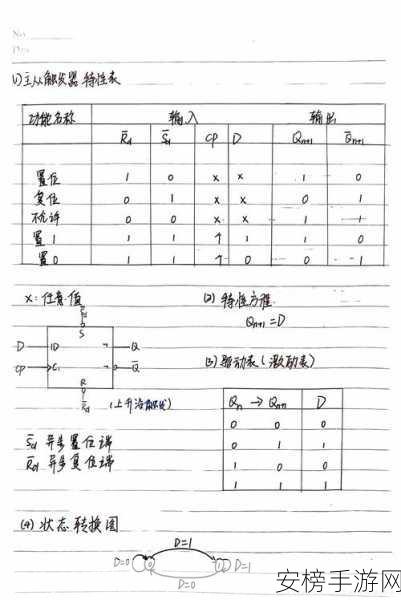 No.
Date
(1)主从触发器 特性表
功能名称 输入 输出
R̄d S̄d CP D Qn+1 Q̄n+1
置位 1 0 × × 1 0
复位 0 1 × × 0 1
不允许 0 0 × × 1 1
置1 1 1 ↑ 1 1 0
置0 1 1 ↑ 0 0 1
×:任意值
(2) 特性方程
Qn+1=D
S̄d
S
D 1D Q
CP C1 Q̄
R
R̄d (上升沿触发)
(3) 驱动表(激励表)
Qn → Qn+1 D
0 0 0
0 1 1
1 0 0
1 1 1
S̄d 异步置位端
R̄d 异步复位端
(4) 状态转换图
D=1
D=0 0 1 D=1
D=0
安榜手游网